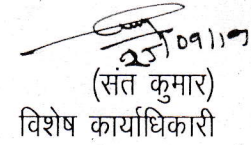 25/09/19
(संत कुमार)
विशेष कार्याधिकारी